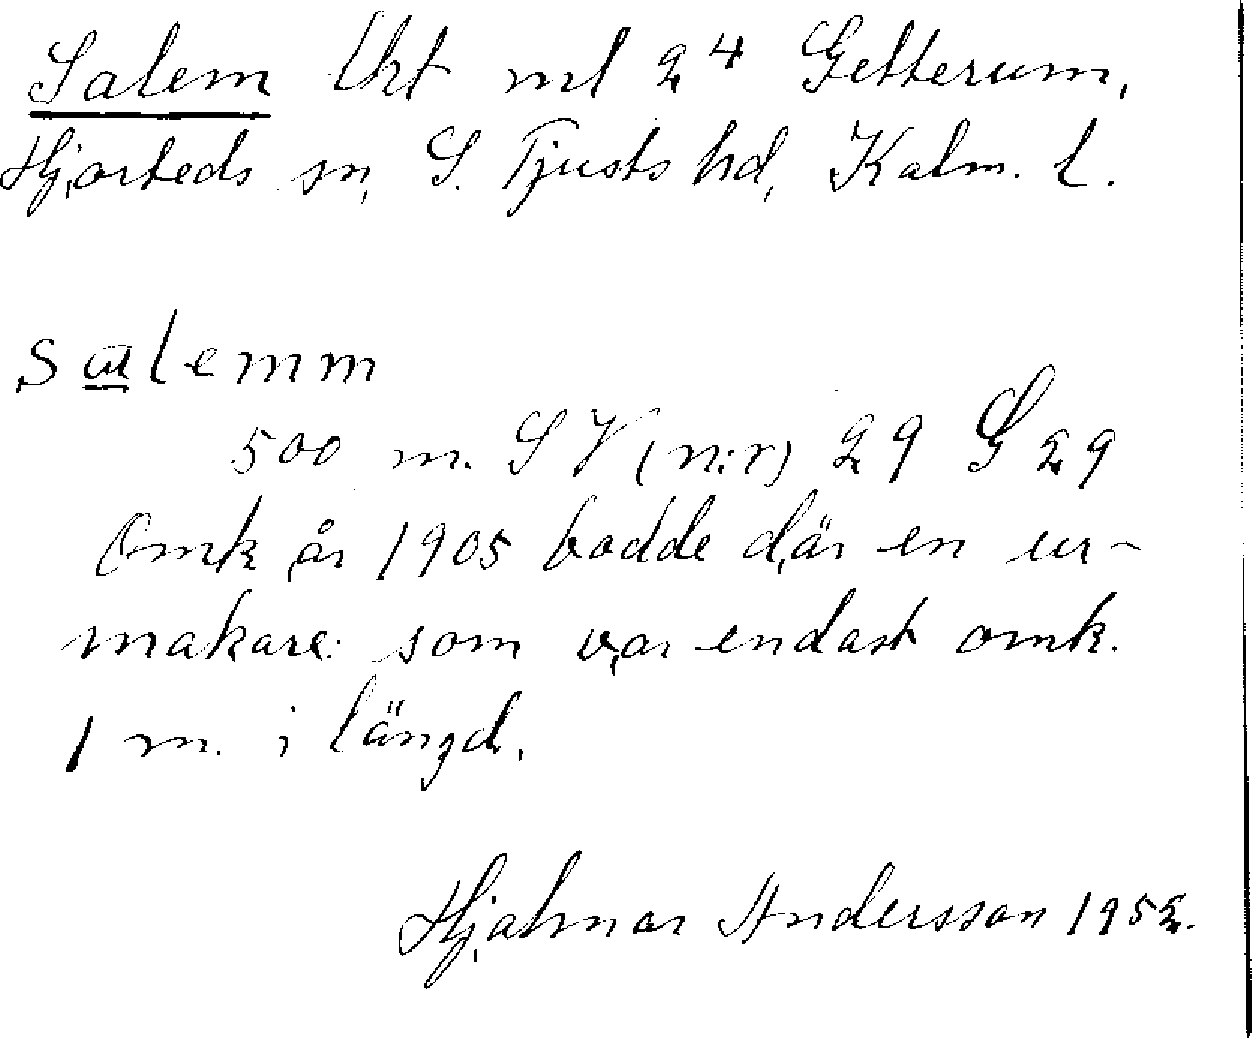 Salem lht ml 2⁴ Getterum,
Hjorteds sn, S. Tjusts hd, Kalm. l.
salemm
500 m. SV (n:r) 29 G 29
Omk år 1905 bodde där en ur-
makare som var endast omk.
1 m. i längd.
Hjalmar Andersson 1952.